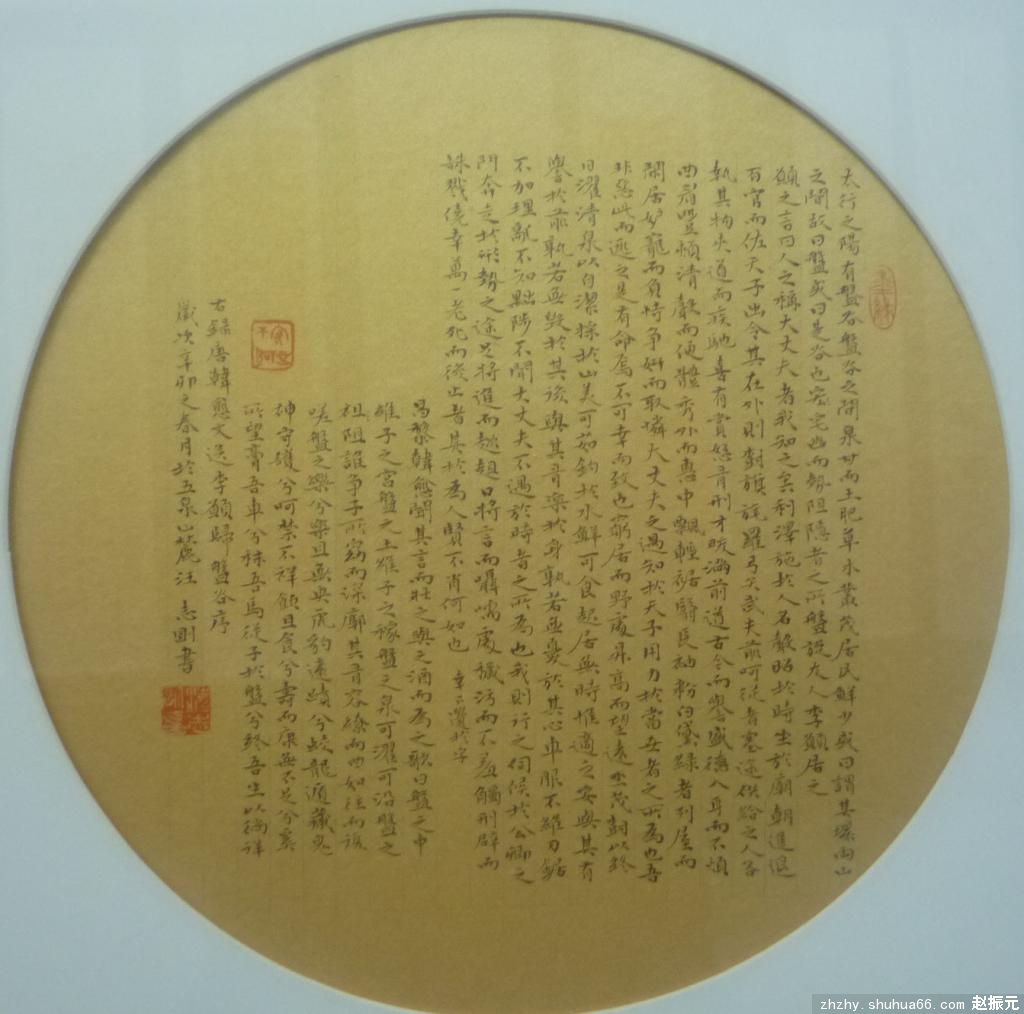 太行之陽有盤谷盤谷之間泉甘而土肥草木叢茂居民鮮少或曰謂其環兩山
之間故曰盤或曰是谷也宅幽而勢阻隱者之所盤旋友人李願居之
願之言曰人之稱大丈夫者我知之矣利澤施於人名聲昭於時坐於廟朝進退
百官而佐天子出令其在外則樹旗旄羅弓矢武夫前呵從者塞途供給之人各
執其物夾道而疾馳喜有賞怒有刑才畯滿前道古今而譽盛德入耳而不煩
曲眉豐頰清聲而便體秀外而惠中飄輕裾翳長袖粉白黛綠者列屋而
閑居妒寵而負恃爭妍而取憐大丈夫之遇知於天子用力於當世者之所為也吾
非惡此而逃之是有命焉不可幸而致也窮居而野處昇高而望遠坐茂樹以終
日濯清泉以自潔採於山美可茹釣於水鮮可食起居無時惟適之安與其有
譽於前孰若無毀於其後與其有樂於身孰若無憂於其心車服不維刀鋸
不加理亂不知黜陟不聞大丈夫不遇於時者之所為也我則行之伺候於公卿之
門奔走於形勢之途足將進而趑趄口將言而囁嚅處穢污而不羞觸刑辟而
誅戮僥幸萬一老死而後止者其於為人賢不肖何如也 遺於字
昌黎韓愈聞其言而壯之與之酒而為之歌曰盤之中
維子之宮盤之土維子之稼盤之泉可濯可沿盤之
阻誰爭子所窈而深廓其有容繚而曲如往而復
嗟盤之樂兮樂且無央虎豹遠跡兮蛟龍遁藏鬼
神守護兮呵禁不祥飲且食兮壽而康無不足兮奚
所望膏吾車兮秣吾馬從子於盤兮終吾生以徜徉
古錄唐韓愈文送李願歸盤谷序
歲次辛卯之春月於五泉山麓汪志剛書
zhzhy.shuhua66.com 赵振元